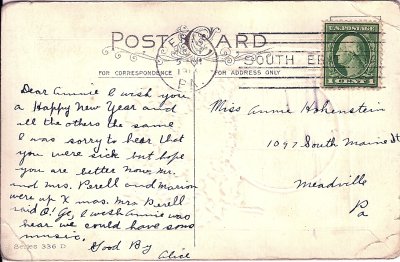 POST CARD
SOUTH
U.S. POSTAGE
1 CENT 1
FOR CORRESPONDENCE
FOR ADDRESS ONLY
PA.
Dear Annie I wish you
a Happy New Year and
all the others the same
I was sorry to hear that
you were sick but hope
you are better now, Mr.
and Mrs. Perell and Marion
were up X mas. Mrs Perell
said O! Gee I wish Annie was
hear we could have some
music.
Good By
Alice
Series 336 D
Miss Annie Hohenstein
1097 South Main St
Meadville
Pa